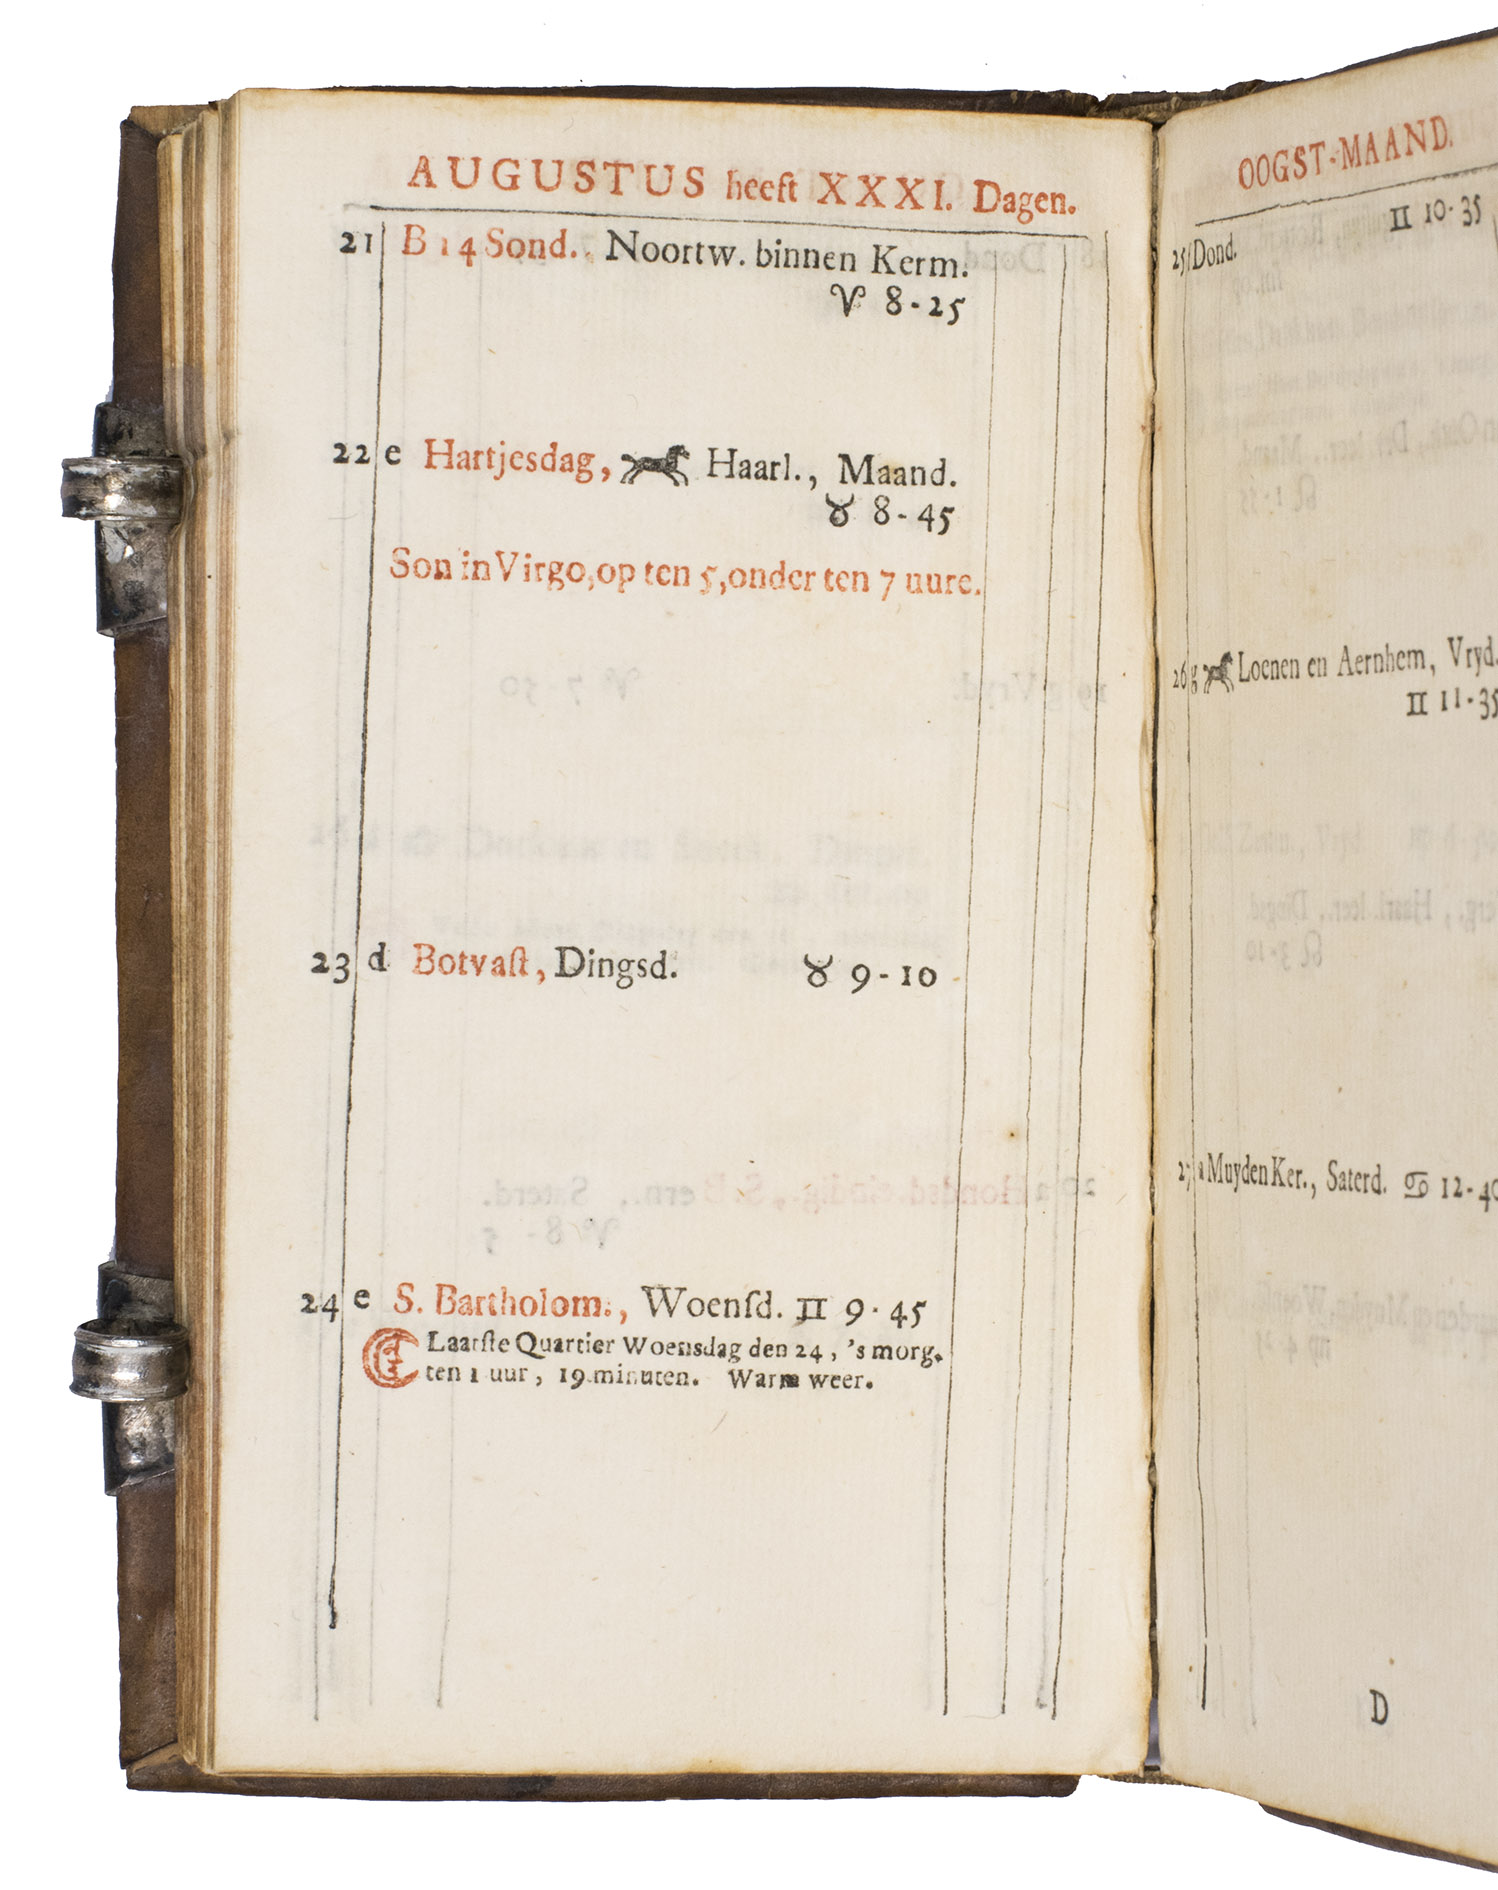 AUGUSTUS heeft XXXI. Dagen.
21 B 14 Sond., Noortw. binnen Kerm.
♈ 8-25
22 e Hartjesdag, Haarl., Maand.
♉ 8-45
Son in Virgo, op ten 5, onder ten 7 uure.
23 d Botvaſt, Dingsd. ♉ 9-10
24 e S. Bartholom., Woenſd. ♊ 9-45
Laatſte Quartier Woensdag den 24, 's morg.
ten 1 uur, 19 minuten. Warm weer.
OOGST-MAAND.
25 Dond.
♊ 10-35
26 g Loenen en Aernhem, Vryd.
♊ 11-35
27 a Muyden Ker., Saterd. ♋ 12-40
D